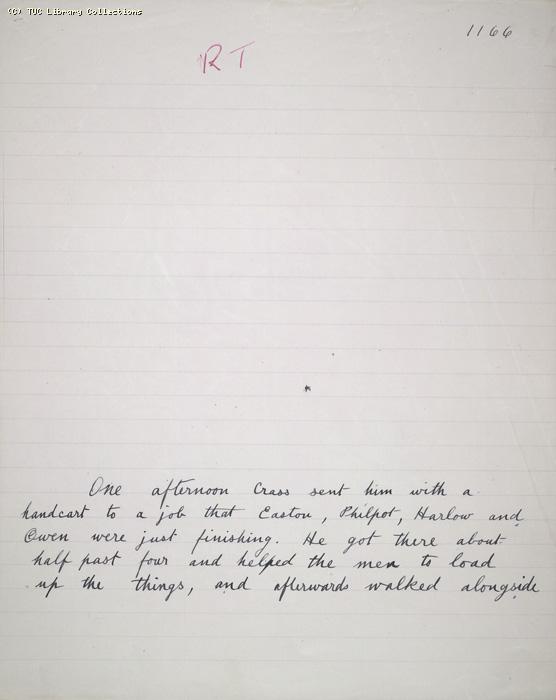 (C) TUC Library Collections
1166
RT
One afternoon Crass sent him with a
handcart to a job that Easton, Philpot, Harlow and
Owen were just finishing. He got there about
half past four and helped the men to load
up the things, and afterwards walked alongside